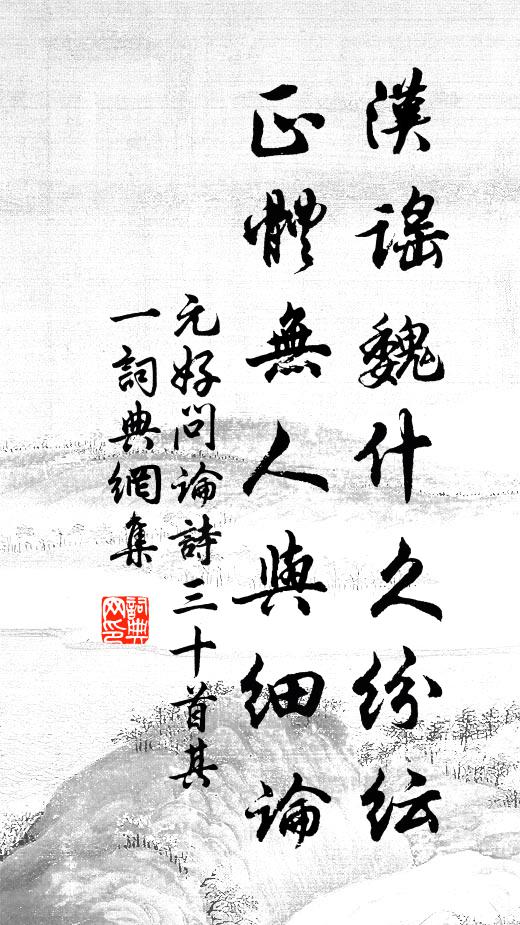 漢謠魏什久紛紜
正體無人與細論
元好問論詩三十首其
一詞典網集
詞典
网印